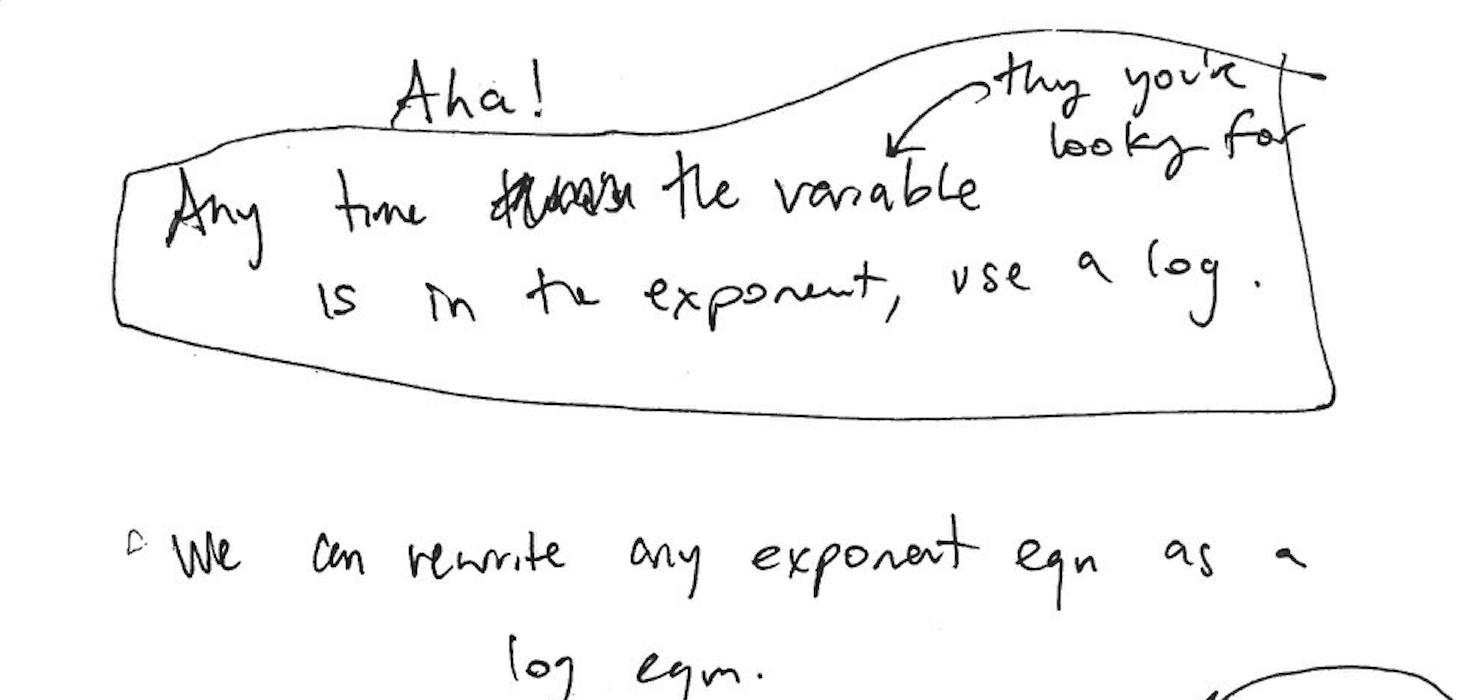 Aha!
thing you're
looking for
Any time the variable
is in the exponent, use a log.
We can rewrite any exponent eqn as a
log eqn.